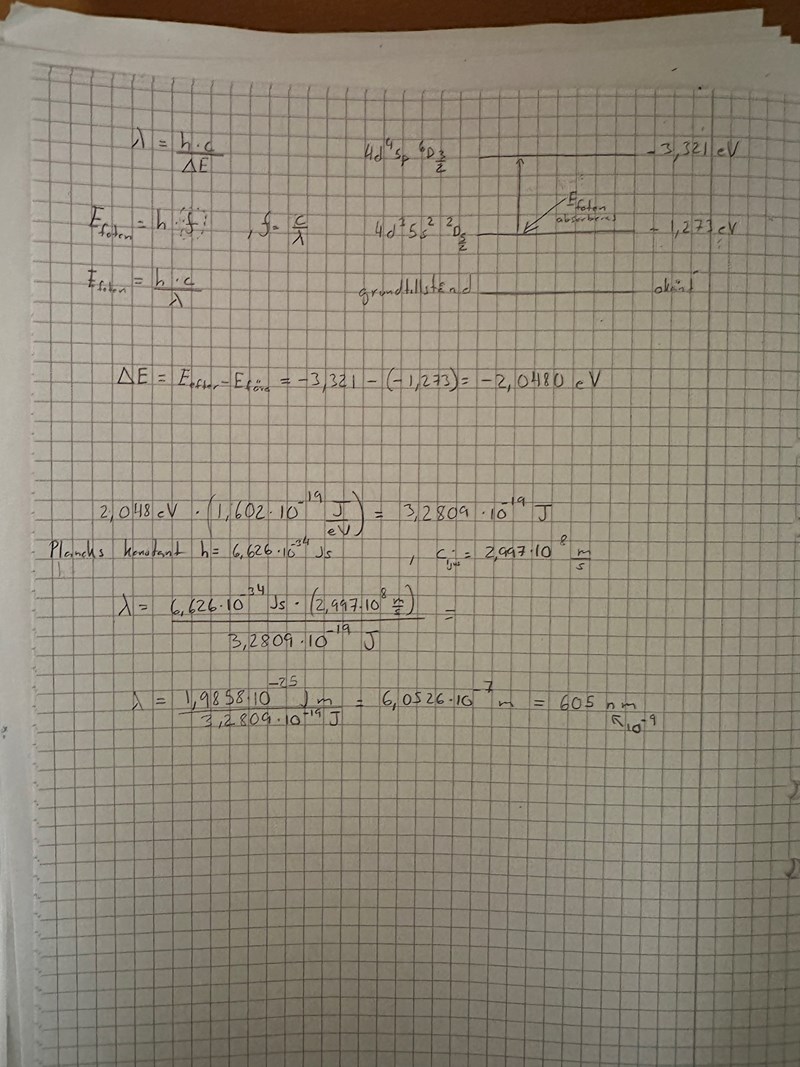 λ = h·c / ΔE
4d⁴5p ⁶D 3/2 - 3,321 eV
E foton = h·f , f = c/λ
E foton absorberas
4d³5s² ²D 5/2 - 1,273 eV
E foton = h·c / λ
grundtillstånd okänt
ΔE = E efter - E före = -3,321 - (-1,273) = -2,0480 eV
2,048 eV · (1,602·10⁻¹⁹ J/eV) = 3,2809·10⁻¹⁹ J
Plancks konstant h = 6,626·10⁻³⁴ Js , c ljus = 2,997·10⁸ m/s
λ = 6,626·10⁻³⁴ Js · (2,997·10⁸ m/s) / 3,2809·10⁻¹⁹ J =
λ = 1,9858·10⁻²⁵ J m / 3,2809·10⁻¹⁹ J = 6,0526·10⁻⁷ m = 605 nm
10⁻⁹